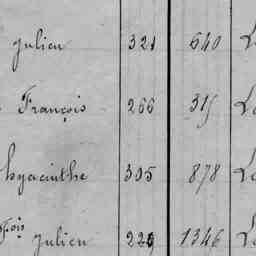 Julien 321 640 L
François 266 315 L
hyacinthe 305 878 L
Fois Julien 229 1346 L